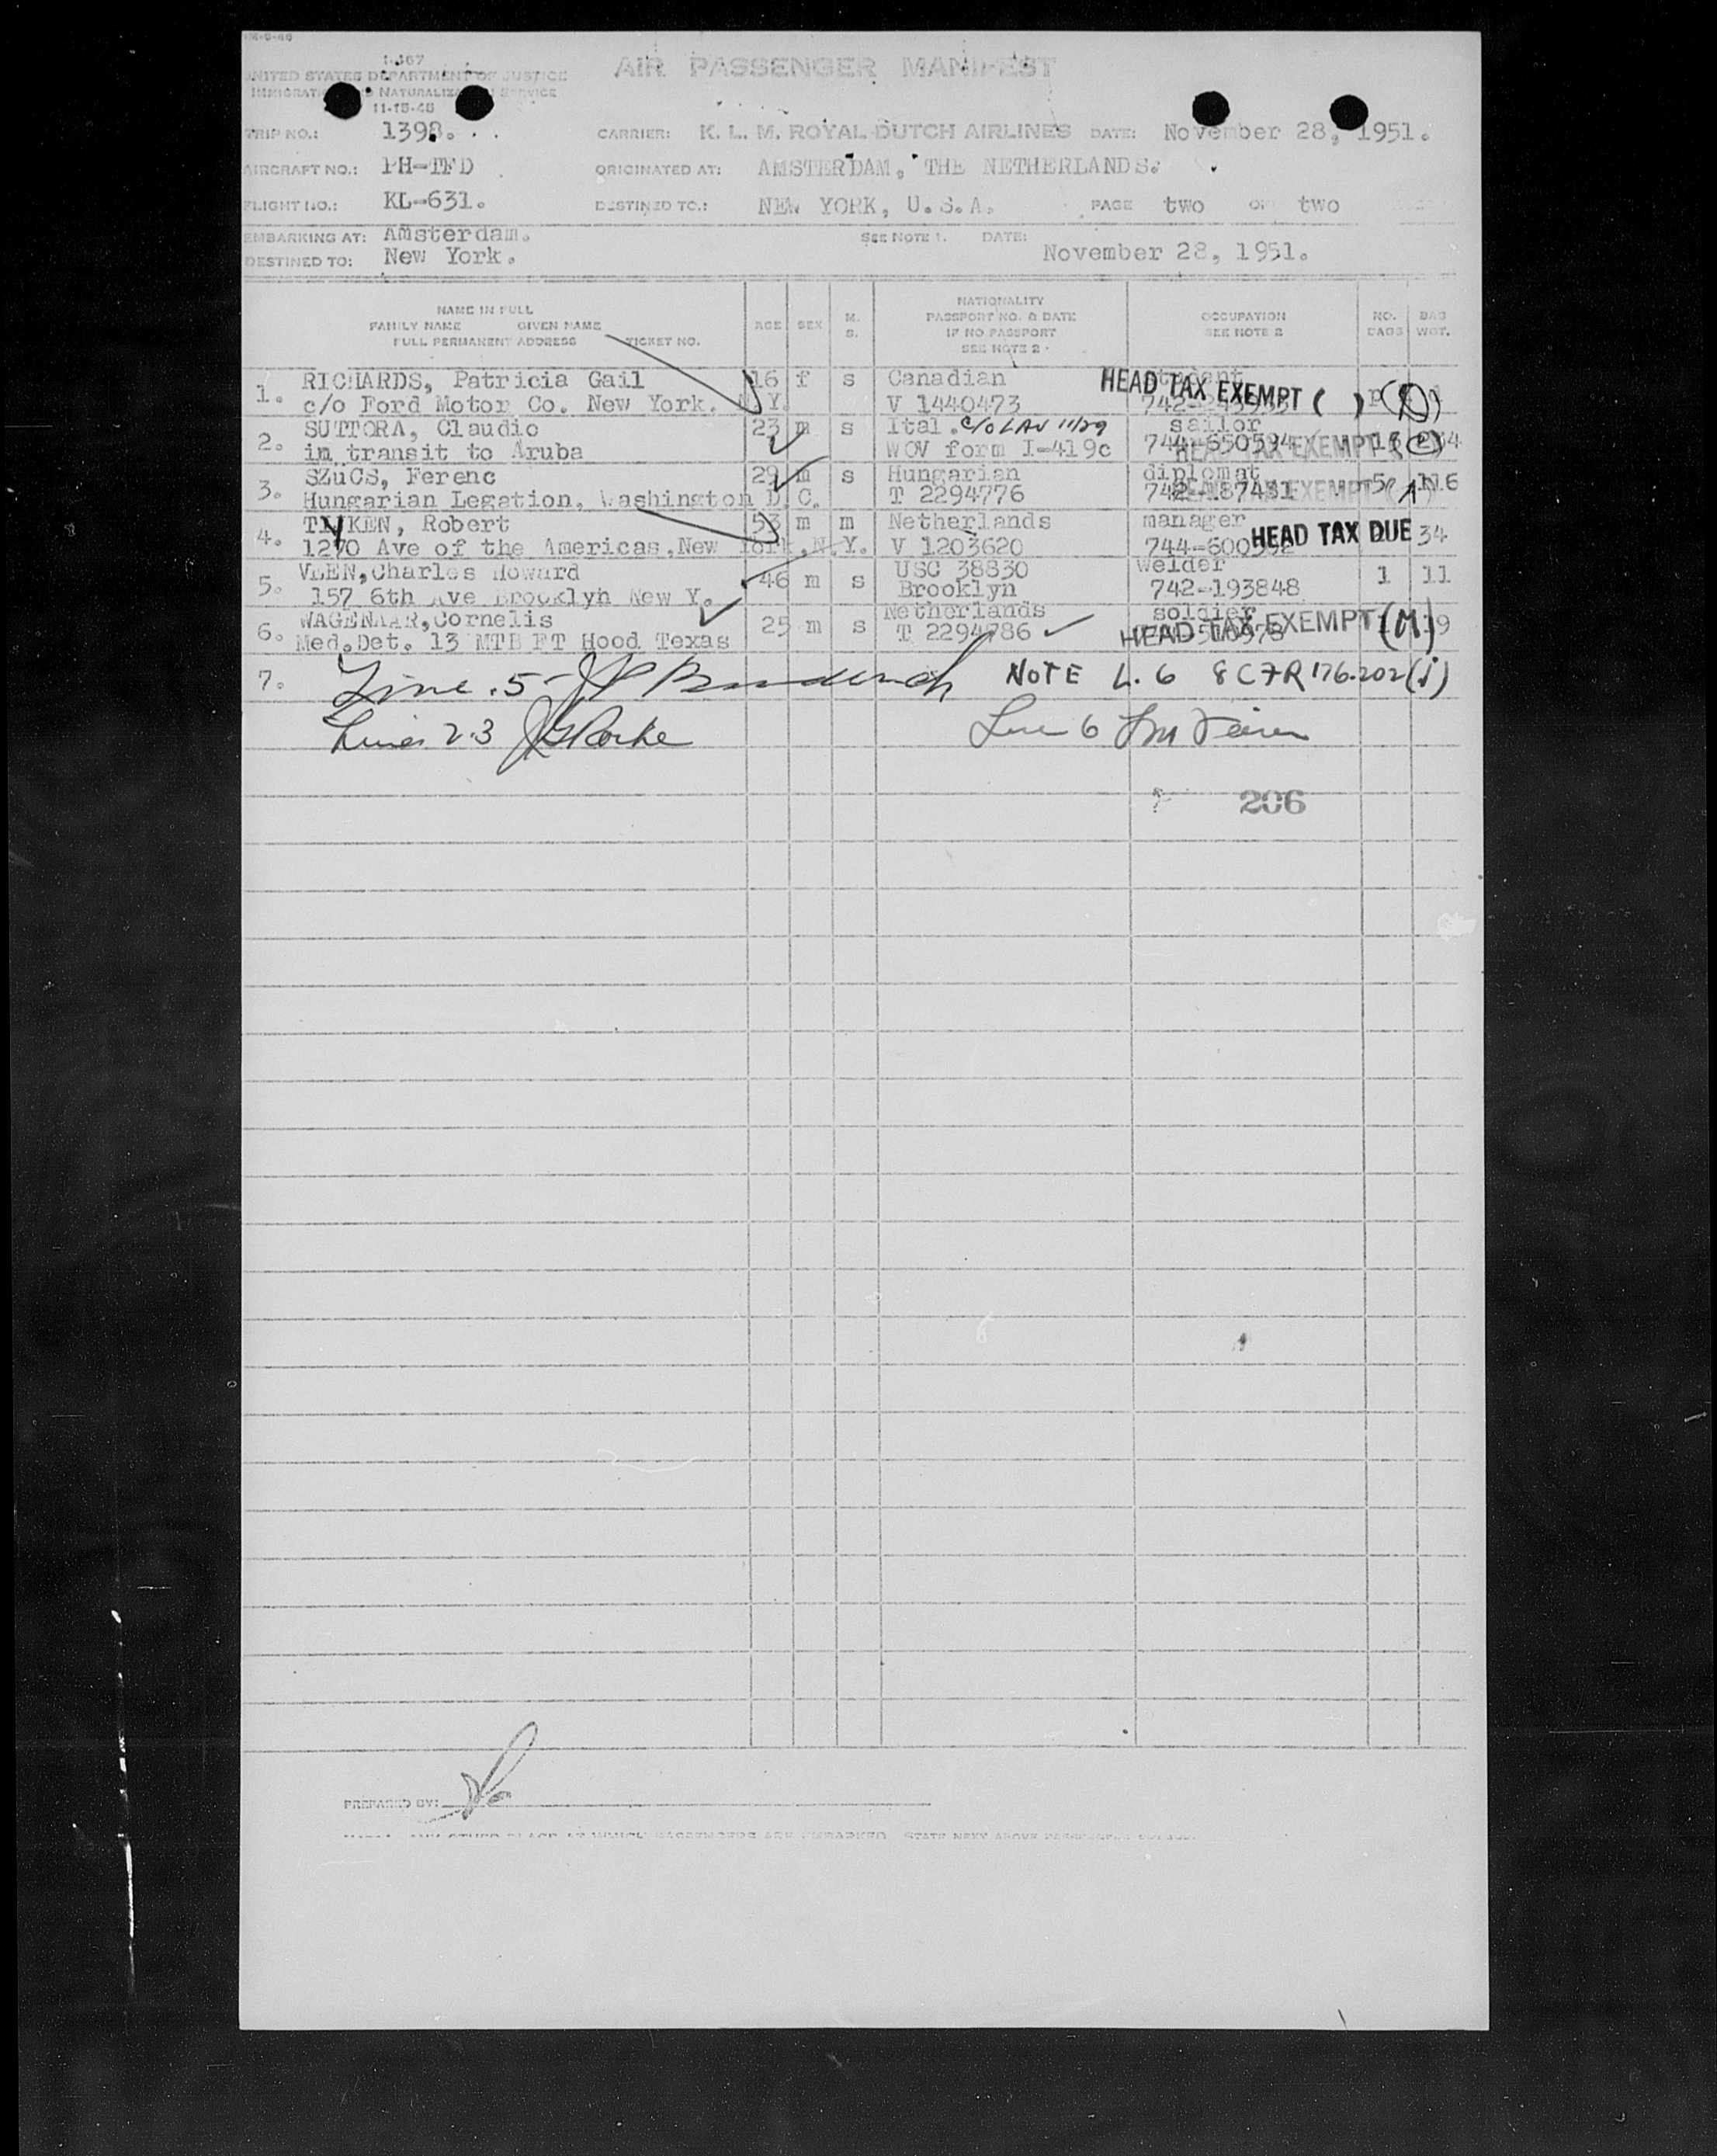 I-467
UNITED STATES DEPARTMENT OF JUSTICE
AIR PASSENGER MANIFEST
11-15-48
TRIP NO.: 1398. CARRIER: K. L. M. ROYAL DUTCH AIRLINES DATE: November 28, 1951.
AIRCRAFT NO.: PH-TFD ORIGINATED AT: AMSTERDAM, THE NETHERLANDS.
FLIGHT NO.: KL-631. DESTINED TO.: NEW YORK, U.S.A. PAGE two OF two
EMBARKING AT: Amsterdam. SEE NOTE 1. DATE:
DESTINED TO: New York. November 28, 1951.
NAME IN FULL
FAMILY NAME GIVEN NAME
FULL PERMANENT ADDRESS TICKET NO.
AGE SEX M. S.
NATIONALITY
PASSPORT NO. & DATE
IF NO PASSPORT
SEE NOTE 2
OCCUPATION
SEE NOTE 2
NO. BAGS
BAG WGT.
1. RICHARDS, Patricia Gail 16 f s Canadian student
c/o Ford Motor Co. New York. N.Y. V 1440473 HEAD TAX EXEMPT ( )
2. SUTTORA, Claudio 23 m s Ital. c/o LAV 11/29 sailor
in transit to Aruba WOV form I-419c 744-650594 HEAD TAX EXEMPT (C)
3. SZüCS, Ferenc 29 m s Hungarian diplomat
Hungarian Legation, Washington D.C. T 2294776 742-187431 HEAD TAX EXEMPT (A) 5 116
4. TYKEN, Robert 53 m m Netherlands manager
1270 Ave of the Americas, New York, N.Y. V 1203620 HEAD TAX DUE 34
5. VEEN, Charles Howard 46 m s USC 38830 welder
157 6th Ave Brooklyn New Y. Brooklyn 742-193848 1 11
6. WAGENAAR, Cornelis 25 m s Netherlands soldier
Med.Det. 13 MTB FT Hood Texas T 2294786 HEAD TAX EXEMPT (M)
7. Line 5- NOTE L. 6 8 CFR 176.202(j)
Lines 2.3 Line 6
206
PREPARED BY:
ANY OTHER PLACE AT WHICH PASSENGERS ARE EMBARKED STATE NEXT ABOVE